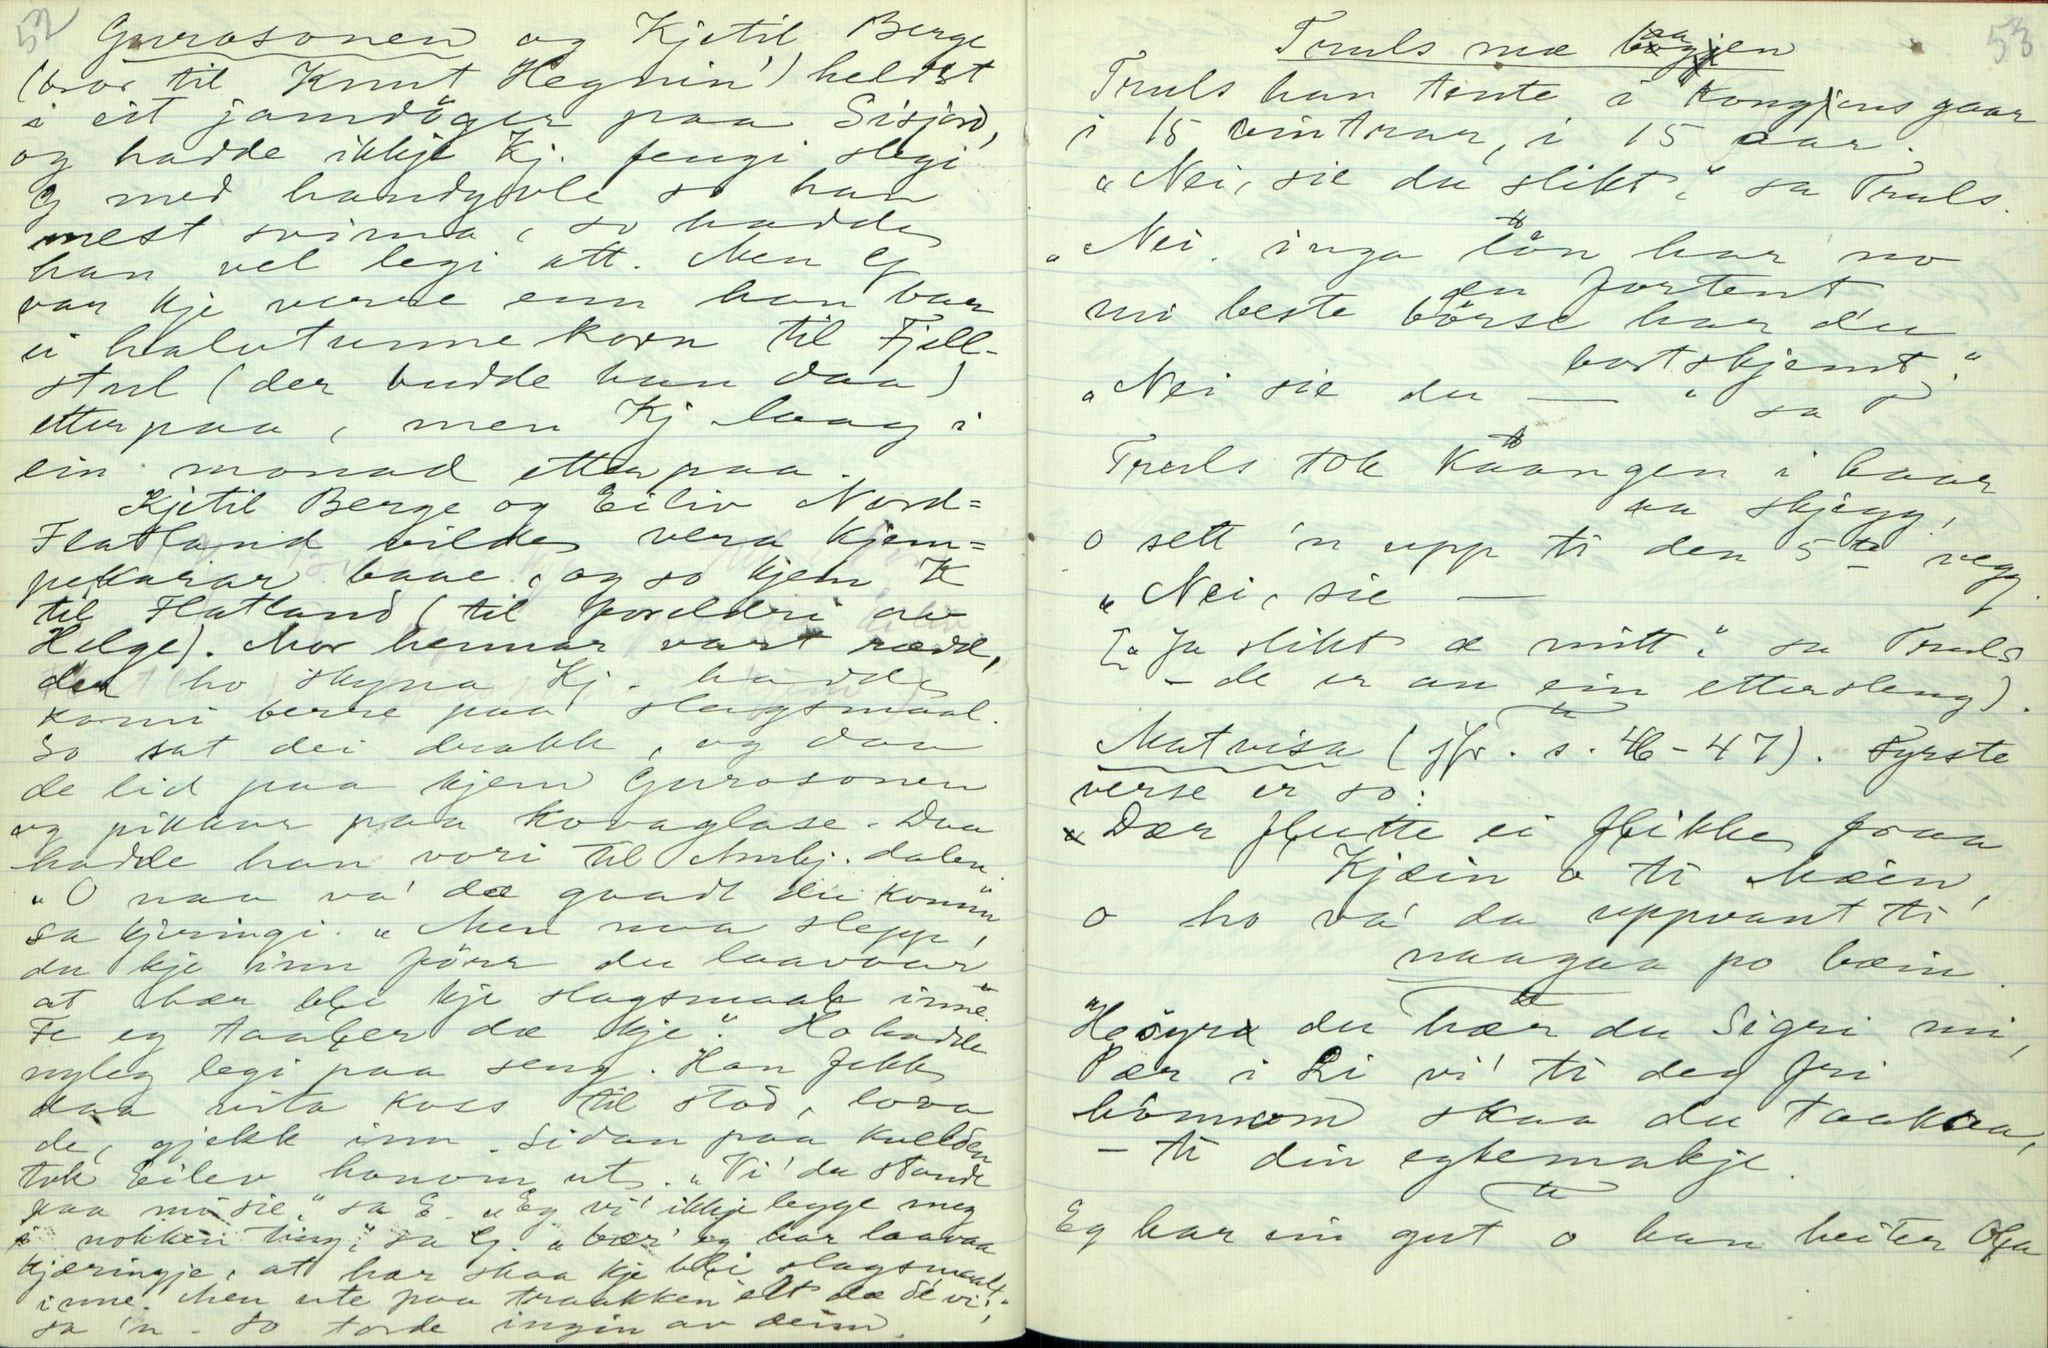 52
Gurosonen og Kjetil Berge
(bror til Knut Hegnin') heldt
i eit jamdöger paa Sisjord,
og hadde ikkje Kj. fengi slegi
G med handyvle so han
mest svima, so hadde
han vel legi att. Men G
var kje verre enn han bar
ei halvtunne korn til Fjell-
stul (der budde han daa)
etterpaa, men Kj laag i
ein monad etterpaa.
Kjetil Berge og Eiliv Nord=
Flatland vilde vera kjem=
pekarar baae, og so kjem K
til Flatland (til foreldri av
Helge). Mor hennar vart rædd,
daa ho skyna Kj. hadde
komi berre paa slagsmaal.
So sat dei drakk, og daa
de lid paa kjem Gurosonen
og pikkar paa kovaglase. Daa
hadde han vori til Numedalen.
"O naa va' dæ goadt du komm"
sa kjeringi. "Men naa slepp'
du kje inn förr du laavaar
at hær bli kje slagsmaal inne.
Fe eg taaler dæ kje". Ho hadde
nyleg legi paa seng. Han fekk
daa vita koss til stod, lova
de, gjekk inn. Sidan paa kvelden
tok Eilev honom ut. "Vi' du stande
paa mi sie," sa E. "Eg vi' ikkje legge meg
i nokken ting," sa G. "bær' eg har laavaa
kjæringje, at hær skaa kje bli slagsmaal
inne. Men ute paa traakken ett dæ de vi',
sa 'n. So torde ingin av deim.
53
Truls mæ baagjen
Truls han tente i kongjens gaar
i 15 vintrar, i 15 aar.
"Nei, sie du slikt," sa Truls.
"Nei, inga lön har no
du fortent
mi beste börse har du
bortskjemt."
"Nei sie du — " sa T
Truls tok kaangen i haar
aa skjegg,
o sett 'n upp ti den 5te vegg.
"Nei, sie —
["Ja slikt æ mitt," sa Truls
— de er an ein ettersleng).
Matvisa (jfr. s. 46-47). Fyrste
verse er so:
Dær flutte ei flikke fraa
Kjæin o ti Mæin,
o ho va' da uppvant ti'
naagaa po bæin.
"Höyre du hær du Sigri mi,
Pær i Li vi' ti deg fri
bönnom skaa du taakaa,
— ti din egtemakje.
Eg har ein gut o han heiter Ola